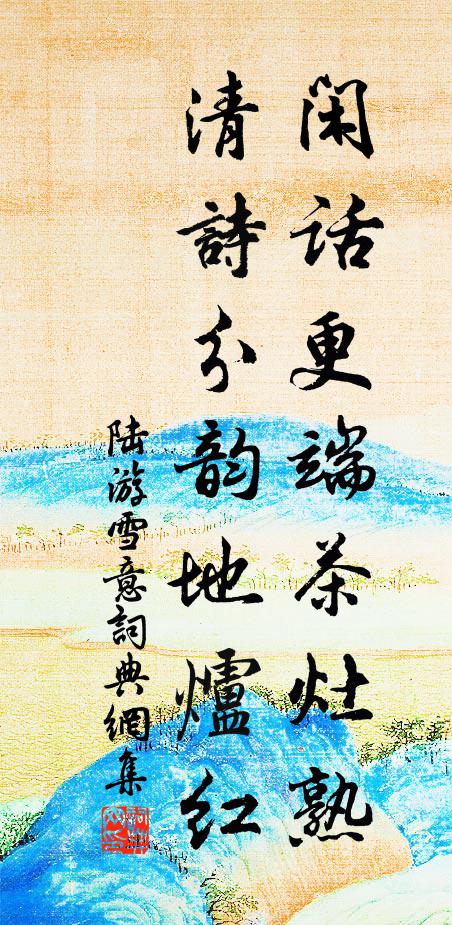 闲话更端茶灶熟
清詩分韵地爐红
陆游雪意詞典網集